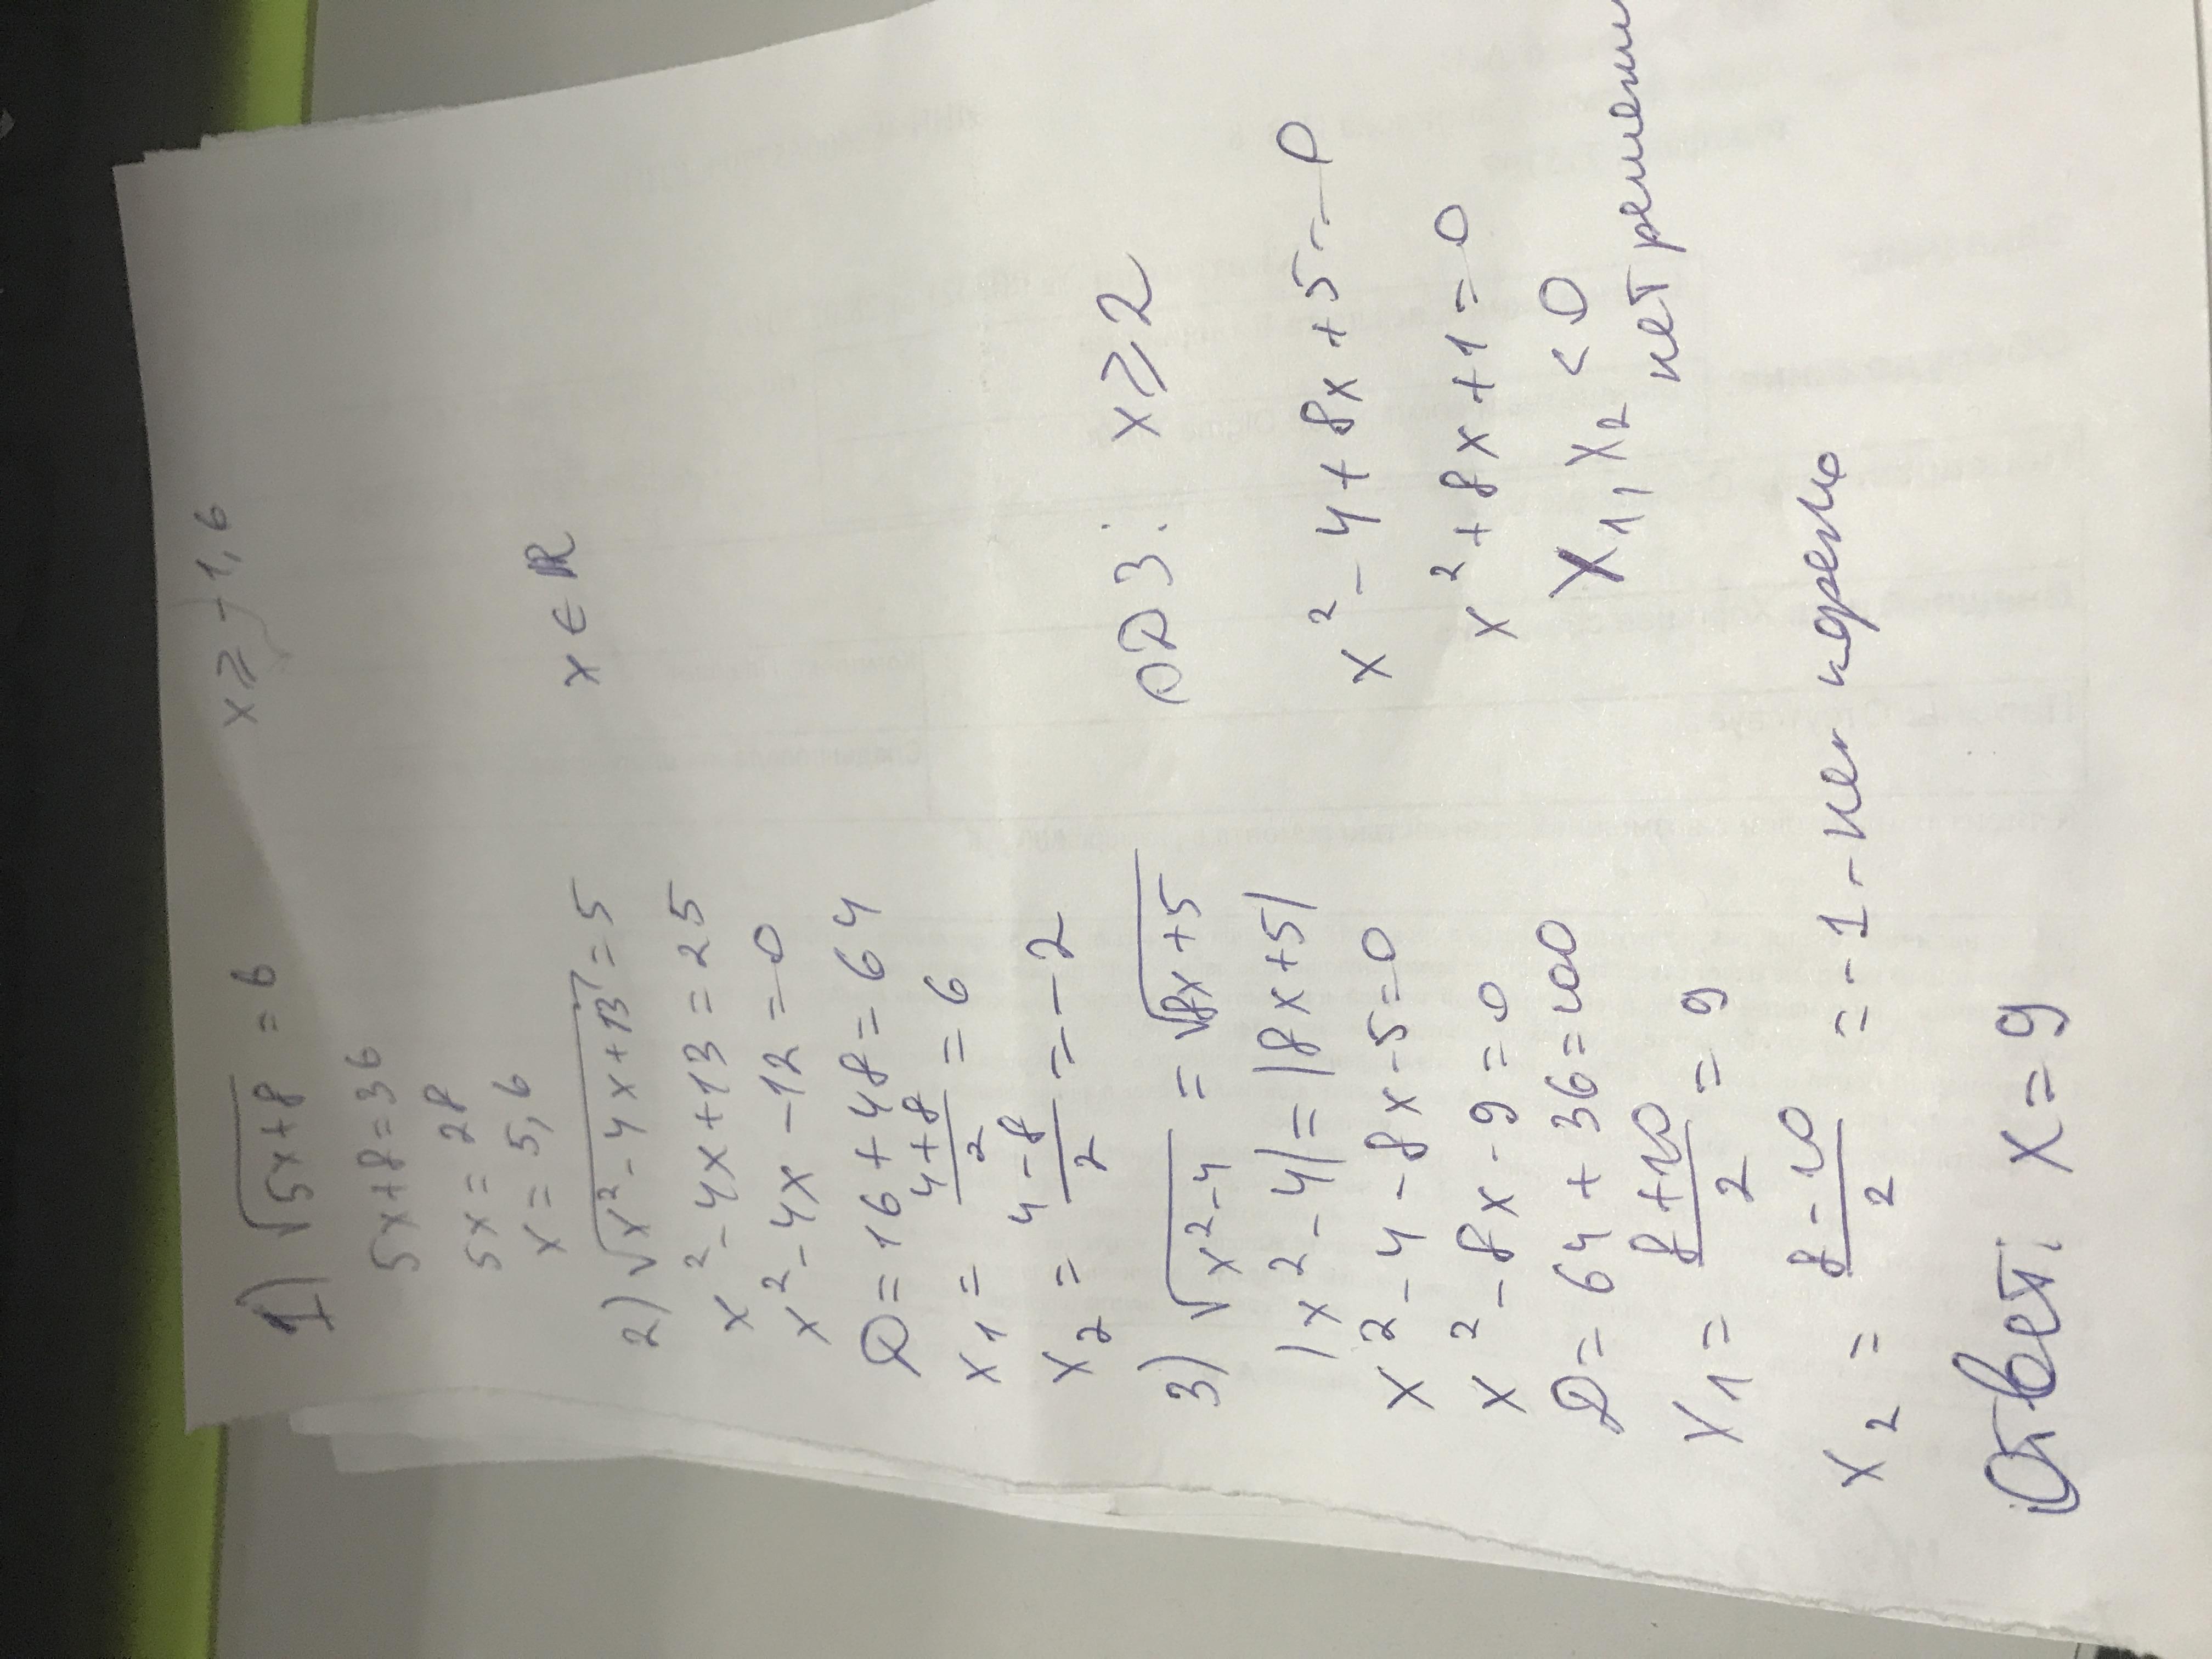 1) √5x+8 = 6 x ⩾ -1,6
5x+8=36
5x = 28
x = 5,6
2) √x²-4x+13 = 5 x ∈ R
x²-4x+13=25
x²-4x-12=0
D=16+48=64
x₁ = 4+8/2 = 6
x₂ = 4-8/2 = -2
3) √x²-4 = √8x+5 ОДЗ: x ⩾ 2
|x²-4|=|8x+5|
x²-4-8x-5=0 x²-4+8x+5=0
x²-8x-9=0 x²+8x+1=0
D=64+36=100 x₁, x₂ < 0
x₁ = 8+10/2 = 9 нет решений
x₂ = 8-10/2 = -1 - не корень
Ответ: x=9